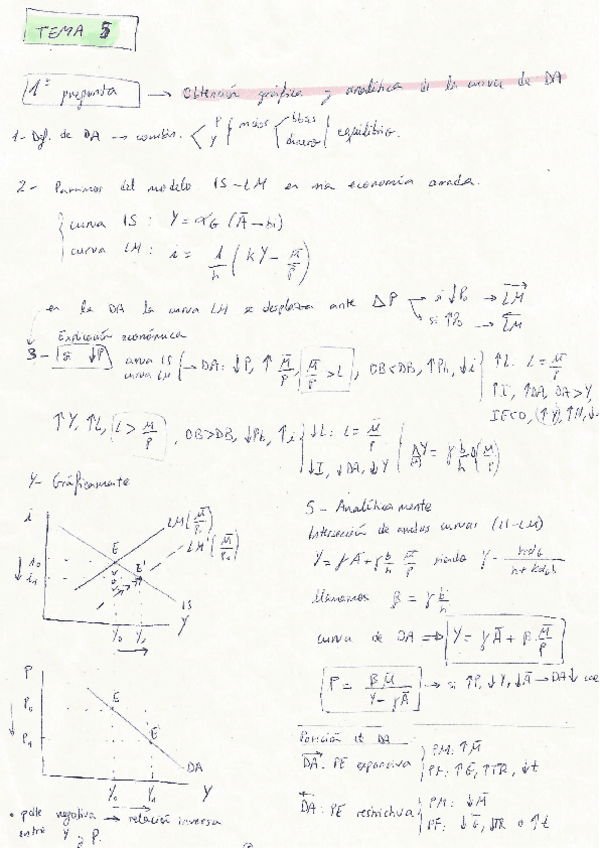 TEMA 5
1ª pregunta → Obtención gráfica y analítica de la curva de DA
1- Def. de DA → combin. < P Y { mdos < bbss dinero } equilibrio.
2- Partimos del modelo IS-LM en una economía cerrada.
curva IS: Y = αG (Ā - bi)
curva LM: i = 1/h (kY - M̄/P)
en la DA la curva LM se desplaza ante ΔP → si ↓P₀ → L͞M
→ si ↑P₀ → L͞M
Explicación económica
3- si ↓P curva IS curva LM → DA: ↓P, ↑ M̄/P, M̄/P > L, OB<DB, ↑Pb, ↓i { ↑L. L = M̄/P
↑I, ↑DA, DA>Y,
↑Y, ↑L, L > M̄/P, OB>DB, ↓Pb, ↑i { ↓L: L = M̄/P
↓I, ↓DA, ↓Y
4- Gráficamente
i
LM (M̄/P₀)
LM' (M̄/P₁)
E
E'
i₀
i₁
IS
Y₀ Y₁ Y
P
P₀
E
P₁
E'
DA
Y₀ Y₁ Y
• pdte negativa → relación inversa
entre Y y P.
5- Analíticamente
Intersección de ambas curvas (IS-LM)
Y = γĀ + γ b/h M̄/P siendo γ =
llamamos β = γ b/h
curva de DA ⇒ Y = γĀ + β M̄/P
P = βM̄ / (Y - γĀ) → si ↑P, ↓Y, ↓Ā → DA↓
Posición de DA
DA: PE expansiva { PM: ↑M̄
PF: ↑G, ↑TR, ↓t
DA: PE restrictiva { PM: ↓M̄
PF: ↓G, ↓TR o ↑t